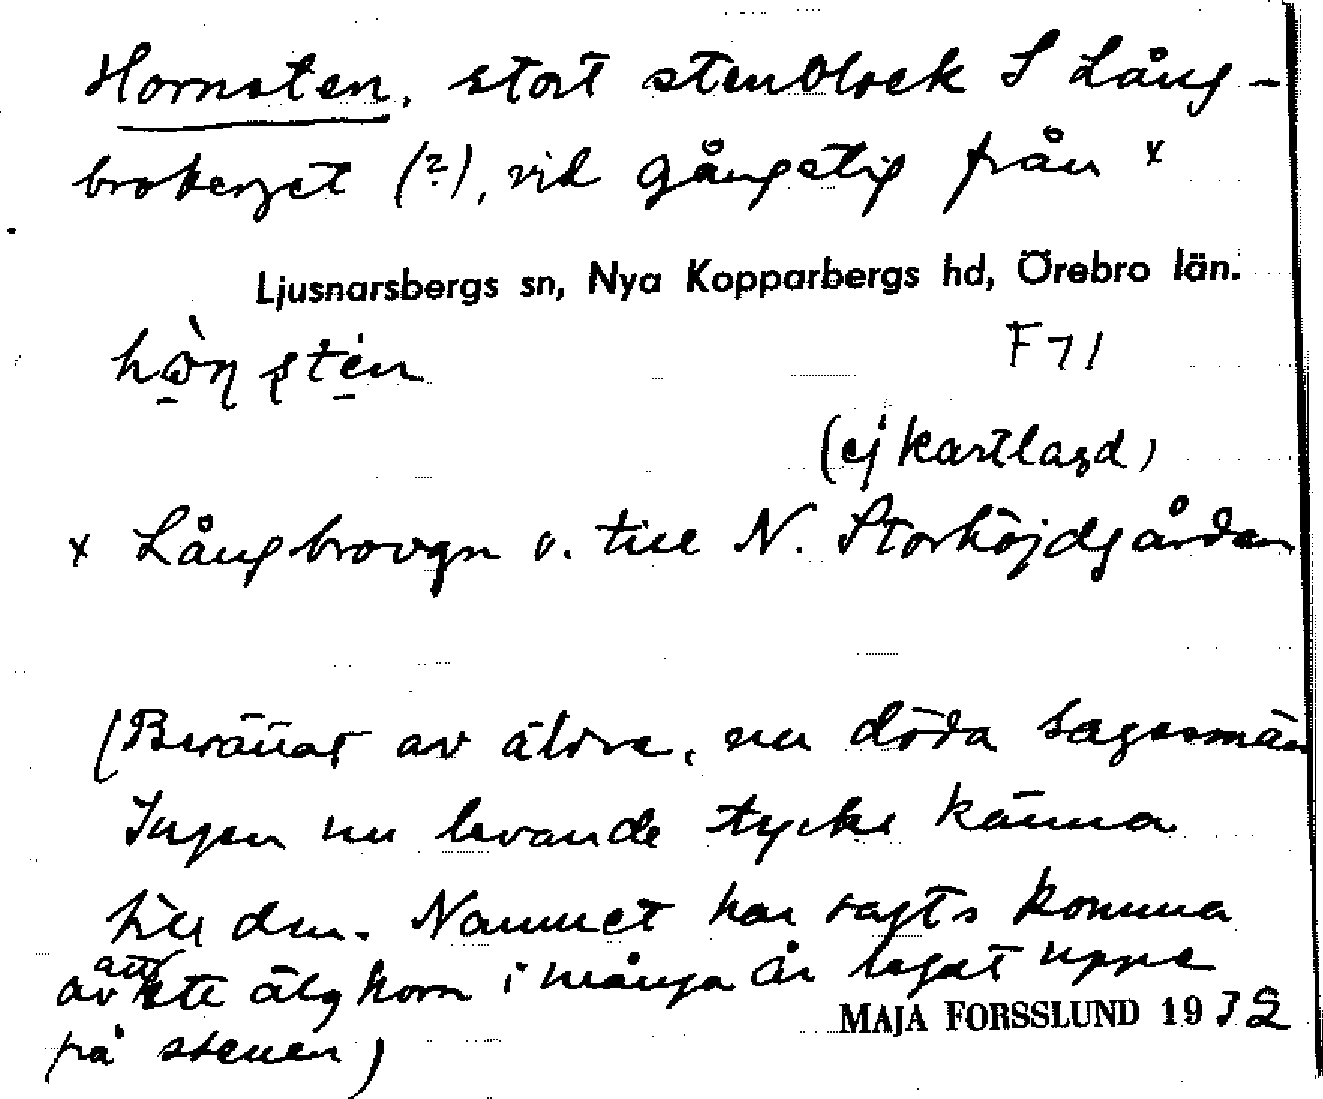 Hornsten, stort stenblock S Lång-
broberget (?), vid gångstig från x
Ljusnarsbergs sn, Nya Kopparbergs hd, Örebro län.
F71
(ej kartlagd)
x Långbrovgn o. till N. Storhöjdgården
(Berättat av äldre, nu döda sagesmän
Ingen nu levande tycks känna
till den. Namnet har sagts komma
av att ett älghorn i många år legat uppe
på stenen)
MAJA FORSSLUND 1932